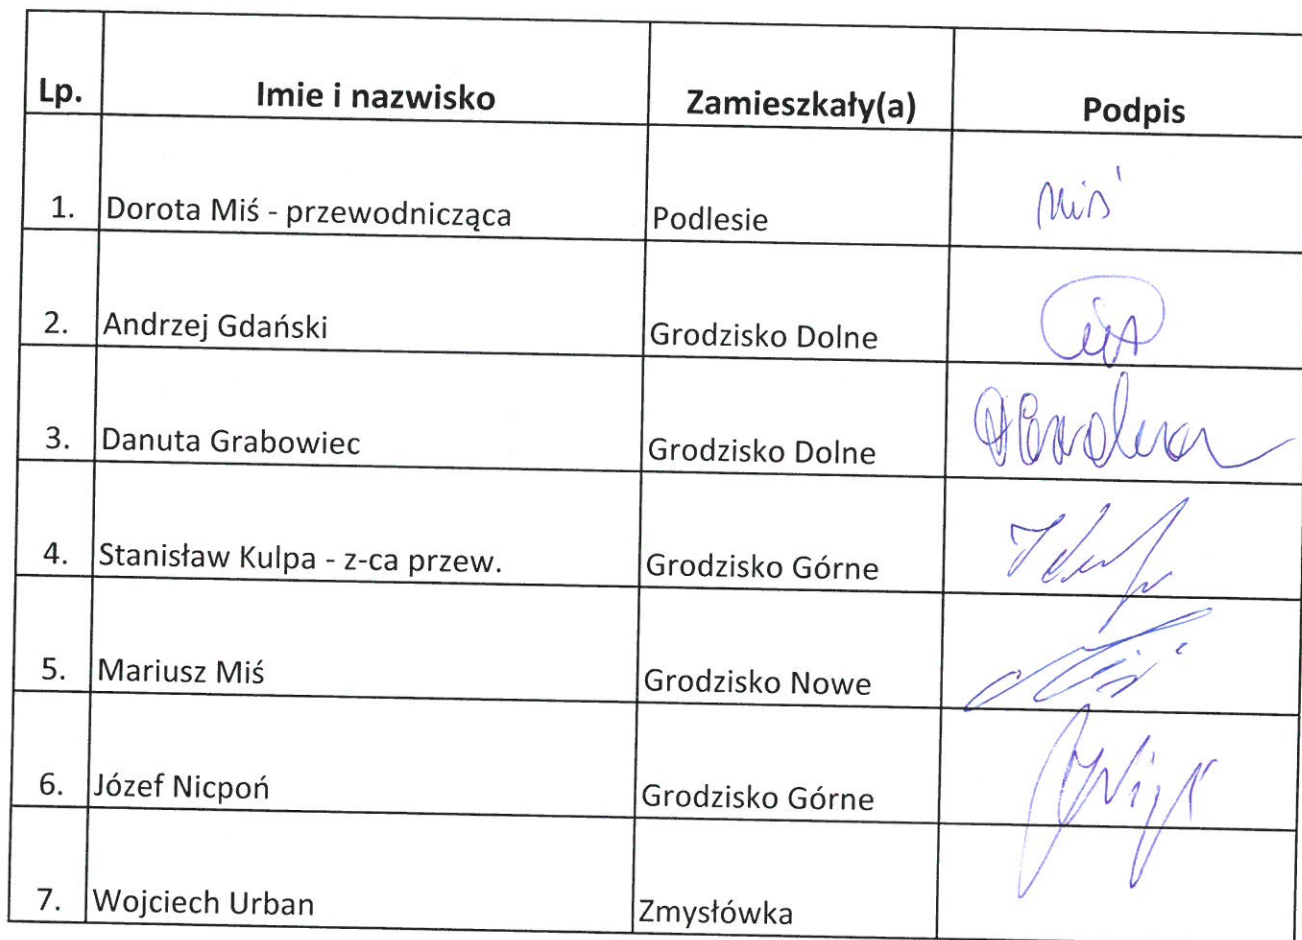 Lp. Imie i nazwisko Zamieszkały(a) Podpis
1. Dorota Miś - przewodnicząca Podlesie Miś
2. Andrzej Gdański Grodzisko Dolne
3. Danuta Grabowiec Grodzisko Dolne
4. Stanisław Kulpa - z-ca przew. Grodzisko Górne
5. Mariusz Miś Grodzisko Nowe Miś
6. Józef Nicpoń Grodzisko Górne
7. Wojciech Urban Zmysłówka